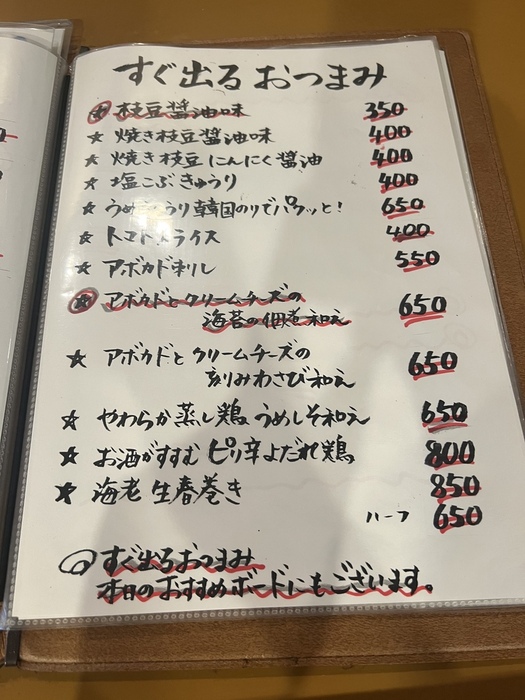 すぐ出るおつまみ
★ 枝豆醤油味 350
★ 焼き枝豆醤油味 400
★ 焼き枝豆にんにく醤油 400
★ 塩こぶきゅうり 400
★ うめきゅうり韓国のりでパクッと! 650
★ トマトスライス 400
★ アボカド刺し 550
★ アボカドとクリームチーズの
海苔の佃煮和え 650
★ アボカドとクリームチーズの
刻みわさび和え 650
★ やわらか蒸し鶏うめしそ和え 650
★ お酒がすすむピリ辛よだれ鶏 800
★ 海老生春巻き 850
ハーフ 650
すぐ出るおつまみ
本日のおすすめボードにもございます。